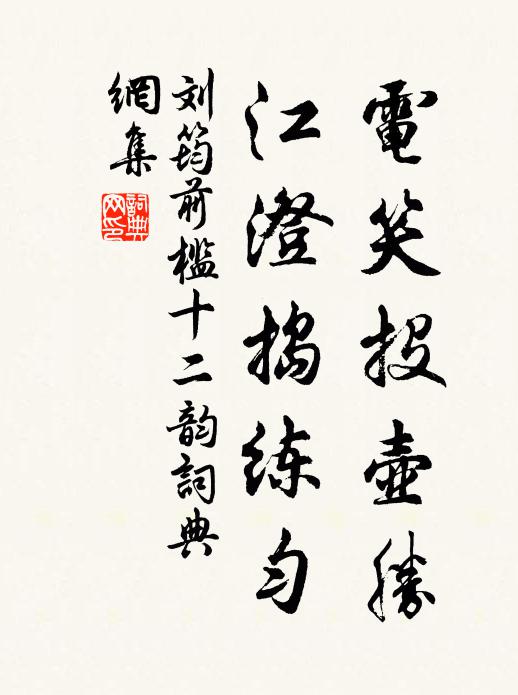 電笑投壺勝
江澄搗練勻
刘筠前檻十二韵詞典
網集
詞典
网印